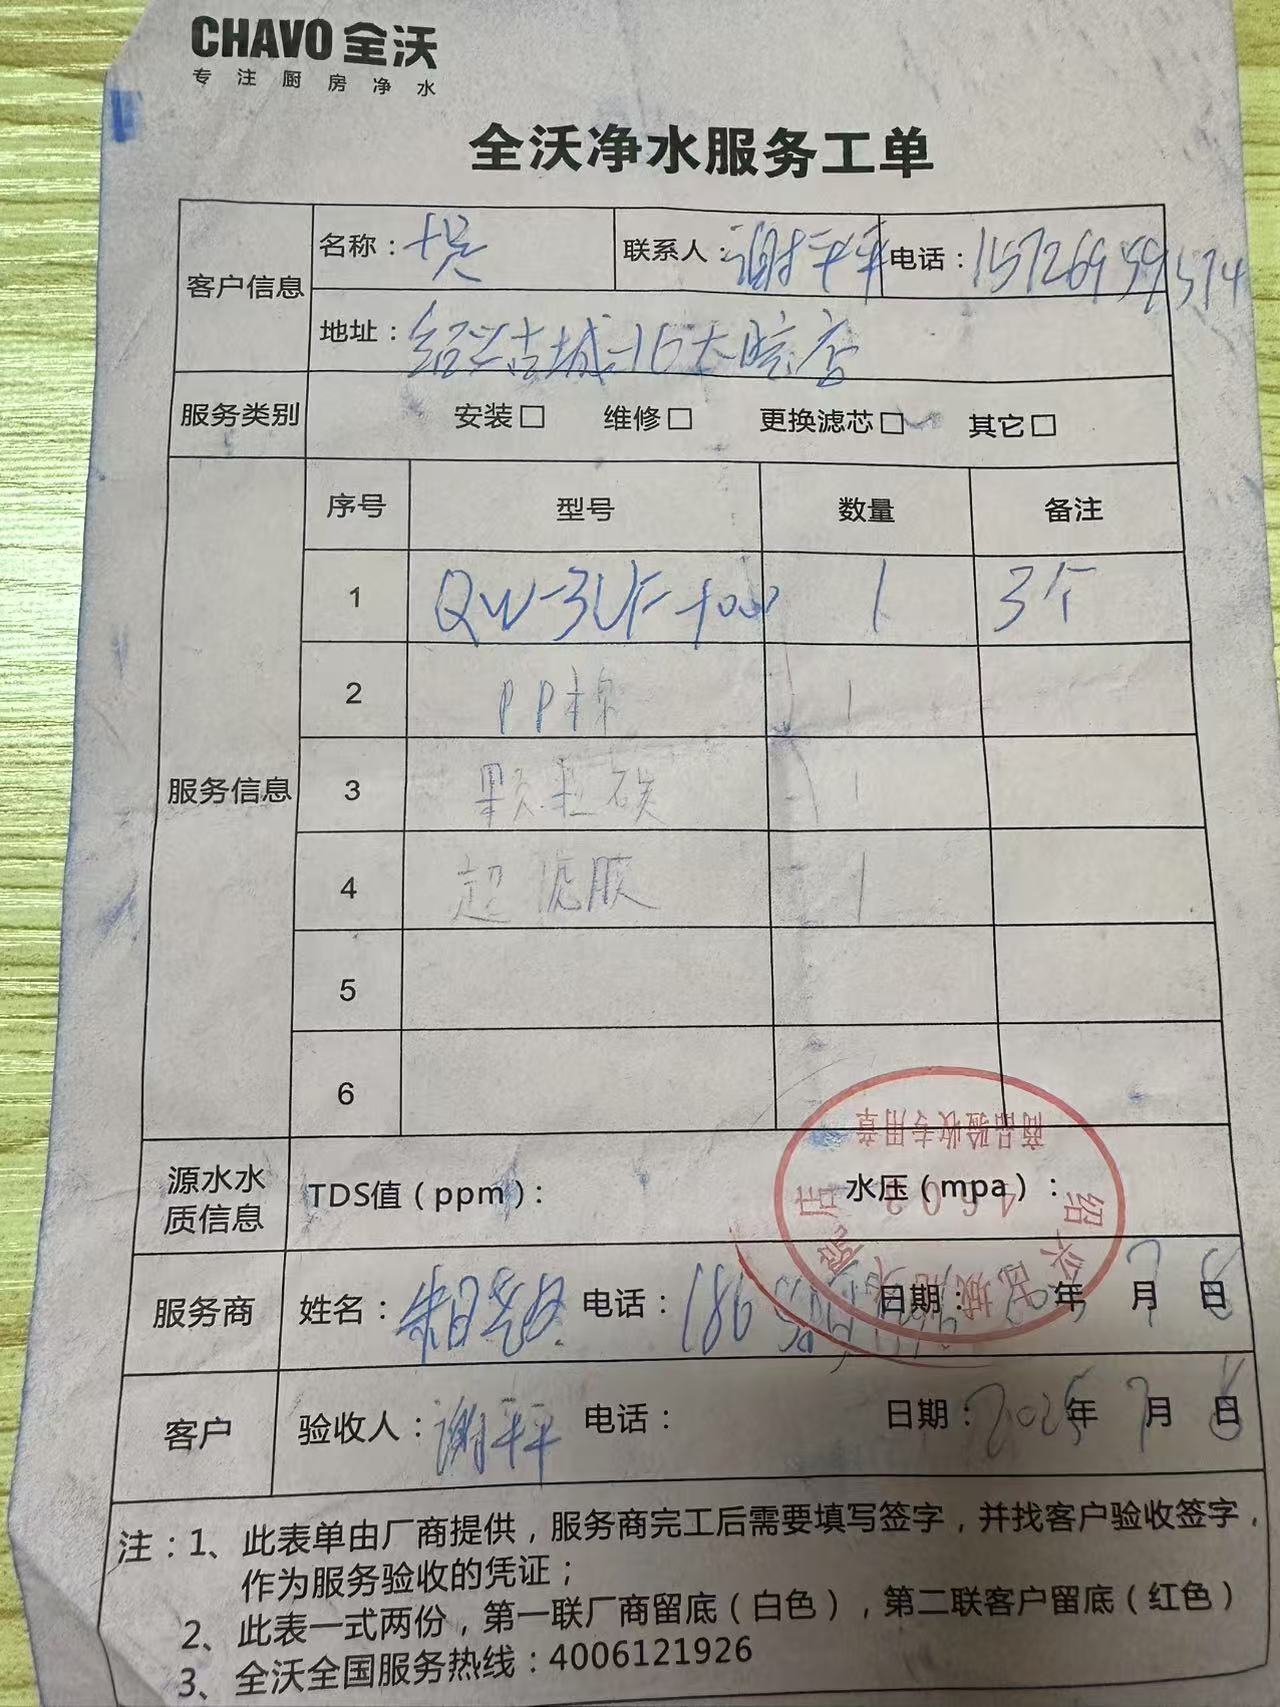 CHAVO 全沃
专注厨房净水
全沃净水服务工单
客户信息
名称：
联系人：谢平平
电话：
地址：绍兴古城
服务类别
安装□ 维修□ 更换滤芯□ 其它□
服务信息
序号 型号 数量 备注
1 QW-3UF-1000 1 3个
2 PP棉 1
3 颗粒碳 1
4 超滤膜 1
5
6
源水水质信息
TDS值（ppm）：
水压（mpa）：
商品验收专用章
服务商
姓名：
电话：186
日期： 年7月8日
客户
验收人：谢平平
电话：
日期：2025年7月8日
注：1、此表单由厂商提供，服务商完工后需要填写签字，并找客户验收签字，
作为服务验收的凭证；
2、此表一式两份，第一联厂商留底（白色），第二联客户留底（红色）
3、全沃全国服务热线：4006121926